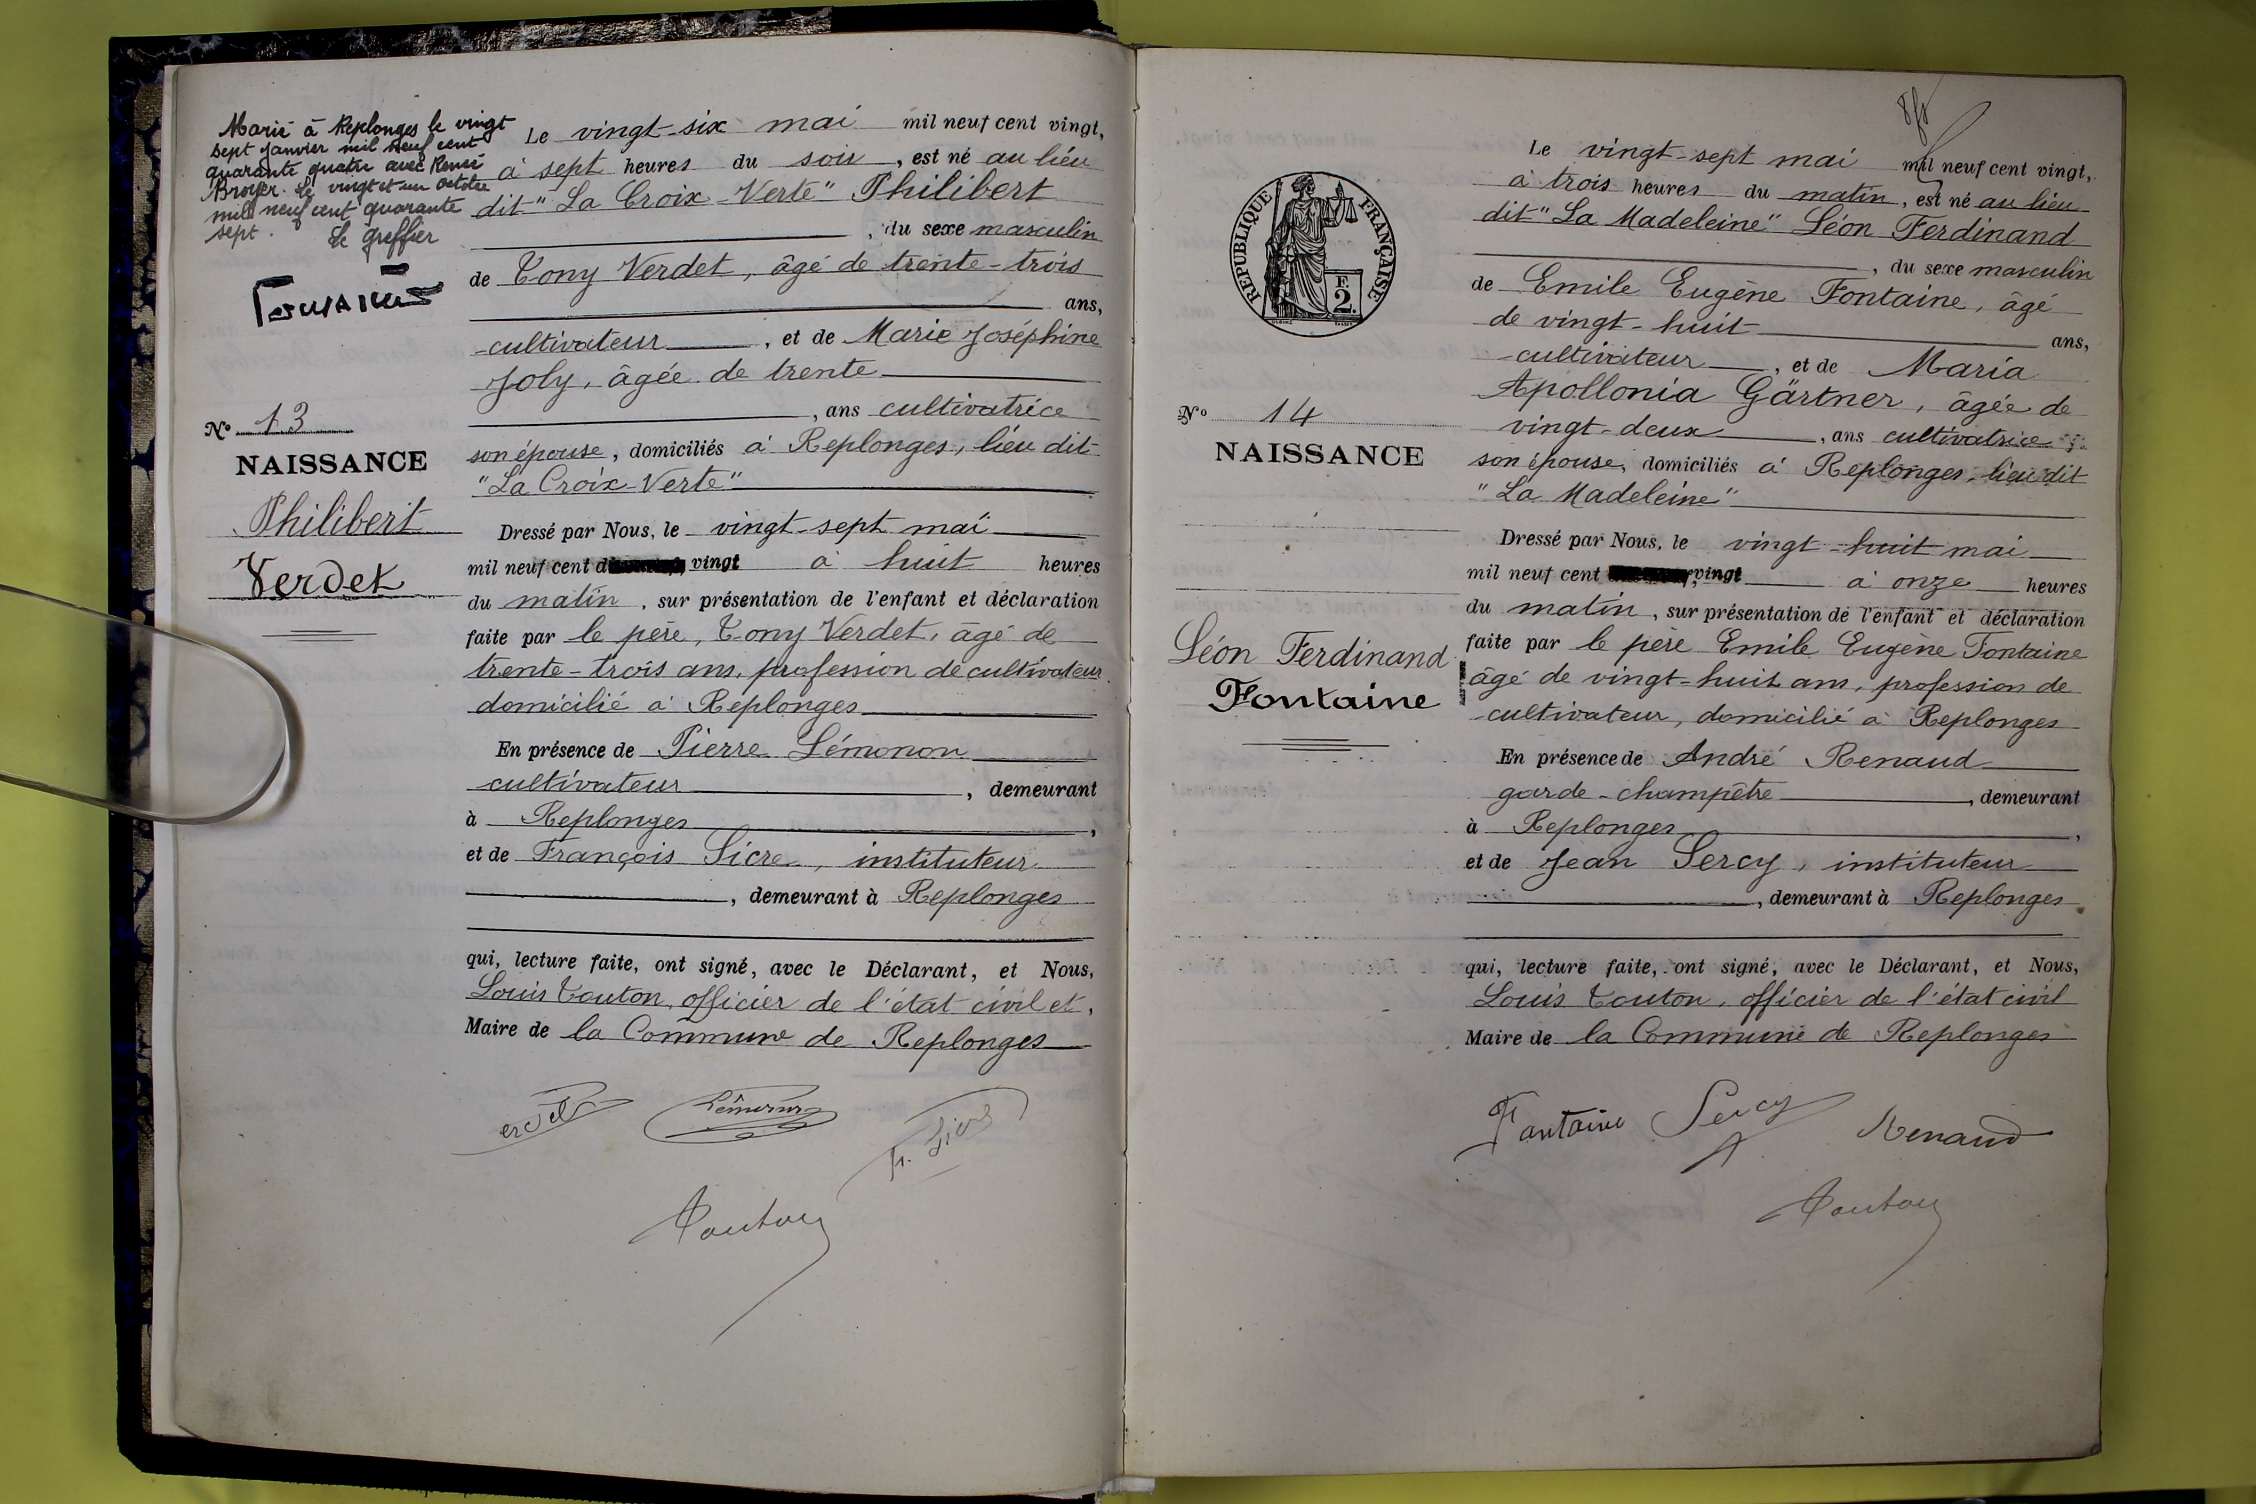 Marié à Replonges le vingt
sept janvier mil neuf cent
quarante quatre avec Renée
Broyer. Le vingt et un octobre
mil neuf cent quarante
sept. Le greffier
N° 13
NAISSANCE
Philibert
Verdet
Le vingt-six mai mil neuf cent vingt,
à sept heures du soir, est né au lieu
dit "La Croix-Verte" Philibert
, du sexe masculin
de Tony Verdet, âgé de trente-trois
ans,
cultivateur, et de Marie Joséphine
Joly, âgée de trente
, ans cultivatrice
son épouse, domiciliés à Replonges, lieu dit
"La Croix Verte"
Dressé par Nous, le vingt-sept mai
mil neuf cent vingt à huit heures
du matin, sur présentation de l'enfant et déclaration
faite par le père, Tony Verdet, âgé de
trente-trois ans, profession de cultivateur
domicilié à Replonges
En présence de Pierre Lémonon
cultivateur, demeurant
à Replonges,
et de François Sicre, instituteur
, demeurant à Replonges
qui, lecture faite, ont signé, avec le Déclarant, et Nous,
Louis Touton, officier de l'état civil et,
Maire de la Commune de Replonges
Lémonon
Fr. Sicre
Touton
RÉPUBLIQUE FRANÇAISE
F.
2.
N° 14
NAISSANCE
Léon Ferdinand
Fontaine
Le vingt-sept mai mil neuf cent vingt,
à trois heures du matin, est né au lieu
dit "La Madeleine" Léon Ferdinand
, du sexe masculin
de Emile Eugène Fontaine, âgé
de vingt-huit ans,
cultivateur, et de Maria
Apollonia Gärtner, âgée de
vingt-deux, ans cultivatrice
son épouse, domiciliés à Replonges, lieu dit
"La Madeleine"
Dressé par Nous, le vingt-huit mai
mil neuf cent vingt à onze heures
du matin, sur présentation de l'enfant et déclaration
faite par le père Emile Eugène Fontaine
âgé de vingt-huit ans, profession de
cultivateur, domicilié à Replonges
En présence de André Renaud
garde-champêtre, demeurant
à Replonges,
et de Jean Sercy, instituteur
, demeurant à Replonges
qui, lecture faite, ont signé, avec le Déclarant, et Nous,
Louis Touton, officier de l'état civil
Maire de la Commune de Replonges
Fontaine Sercy Renaud
Touton